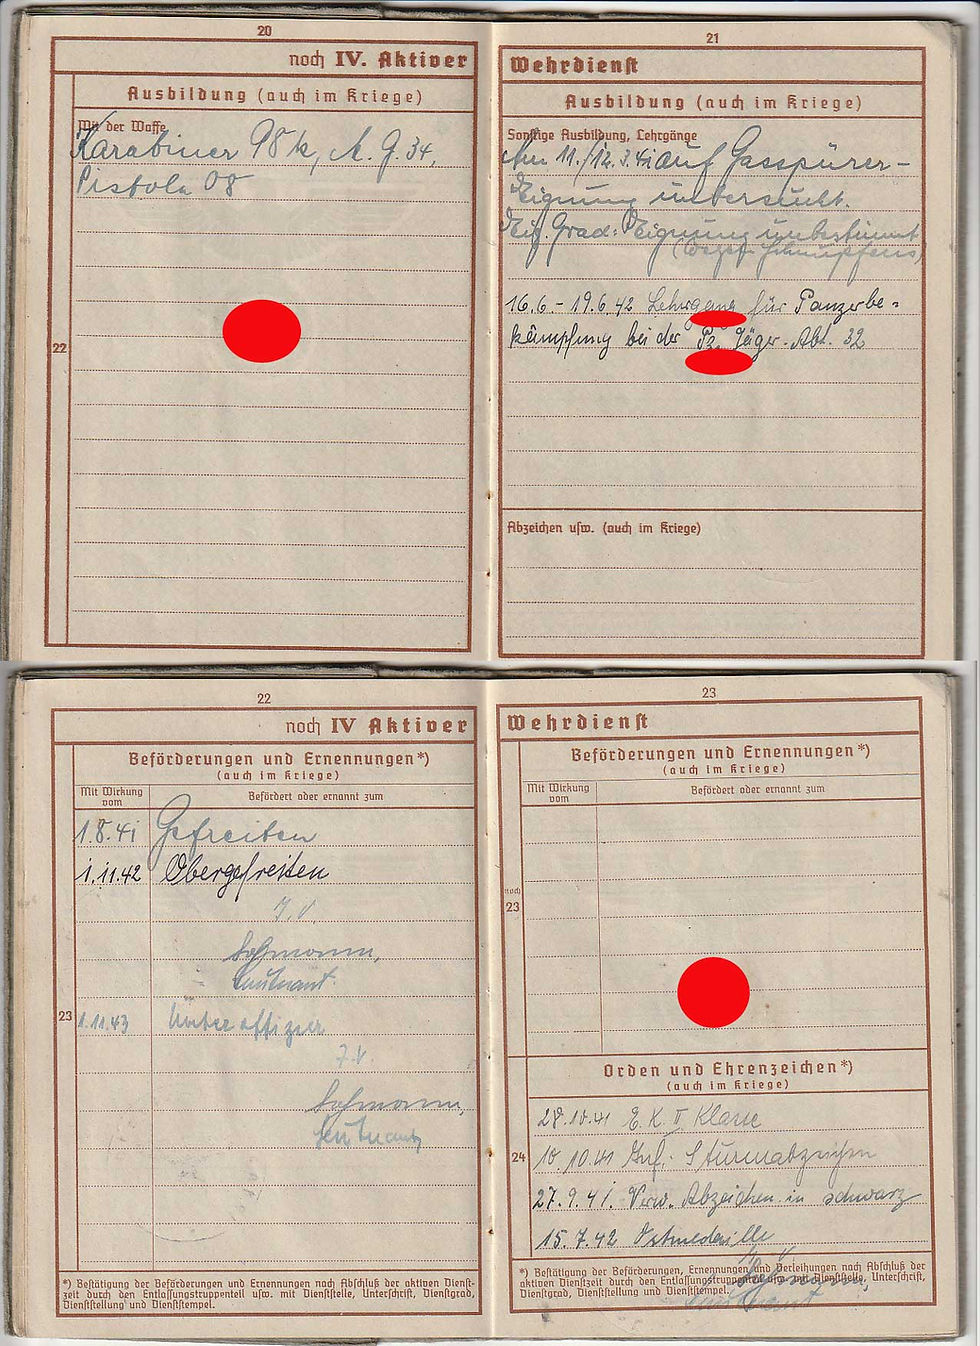 20
noch IV. Aktiver
Ausbildung (auch im Kriege)
Mit der Waffe
Karabiner 98 k, M. G. 34,
Pistole 08
22
21
Wehrdienst
Ausbildung (auch im Kriege)
Sonstige Ausbildung, Lehrgänge
Am 11./12. 3. 41 auf Gasspürer-
Eignung untersucht.
Eig. Grad: Eignung unbestimmt
(wegen Schnupfens)
16.6 - 19.6 42 Lehrgang für Panzerbe-
kämpfung bei der Pz. Jäger-Abt. 32
Abzeichen usw. (auch im Kriege)
22
noch IV Aktiver
Beförderungen und Ernennungen*)
(auch im Kriege)
Mit Wirkung vom
Befördert oder ernannt zum
1.8.41 Gefreiten
1.11.42 Obergefreiten
I.V
Leutnant.
23
1.11.43 Unteroffizier
I.V.
Leutnant
*) Bestätigung der Beförderungen und Ernennungen nach Abschluß der aktiven Dienst-
zeit durch den Entlassungstruppenteil usw. mit Dienststelle, Unterschrift, Dienstgrad,
Dienststellung und Dienststempel.
23
Wehrdienst
Beförderungen und Ernennungen*)
(auch im Kriege)
Mit Wirkung vom
Befördert oder ernannt zum
noch
23
Orden und Ehrenzeichen*)
(auch im Kriege)
28.10.41 E. K. II Klasse
24
10 10.41 Inf. Sturmabzeichen
27.9.41. Verw. Abzeichen in schwarz
15.7.42 Ostmedaille
*) Bestätigung der Beförderungen, Ernennungen und Verleihungen nach Abschluß der
aktiven Dienstzeit durch den Entlassungstruppenteil usw. mit Dienststelle, Unterschrift,
Dienstgrad, Dienststellung und Dienststempel.
Leutnant